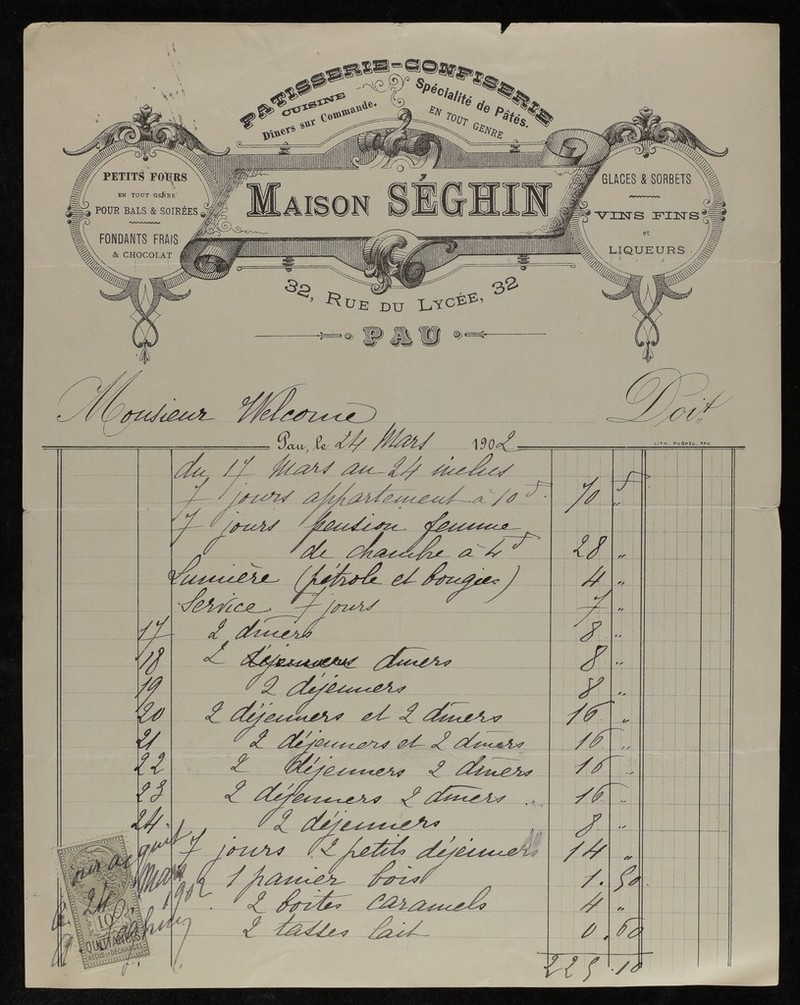 PATISSERIE-CONFISERIE
CUISINE
Dîners sur Commande.
Spécialité de Pâtés.
EN TOUT GENRE
PETITS FOURS
EN TOUT GENRE
POUR BALS & SOIRÉES
FONDANTS FRAIS
& CHOCOLAT
MAISON SÉGHIN
GLACES & SORBETS
VINS FINS
et
LIQUEURS
32, RUE DU LYCÉE, 32
PAU
Monsieur Welcome Doit
Pau, le 24 Mars 1902
LITH. DUGHEU, PAU.
du 17 Mars au 24 inclus
7 jours appartement à 10 f. 70 f "
7 jours pension femme
de chambre à 4 f 28 "
Lumière (pétrole et bougies) 4 "
Service 7 jours 7 "
17 2 diners 8 "
18 2 déjeuners diners 8 "
19 2 déjeuners 8 "
20 2 déjeuners et 2 diners 16 "
21 2 déjeuners et 2 diners 16 "
22 2 déjeuners 2 diners 16 "
23 2 déjeuners 2 diners 16 "
24 2 déjeuners 8 "
7 jours 2 petits déjeuners 14 "
1 panier bois 1.50
2 boites caramels 4 "
2 tasses lait 0.60
225.10
pour acquit
le 24 Mars 1902
10c
QUITTANCES
REÇUS ET DÉCHARGES